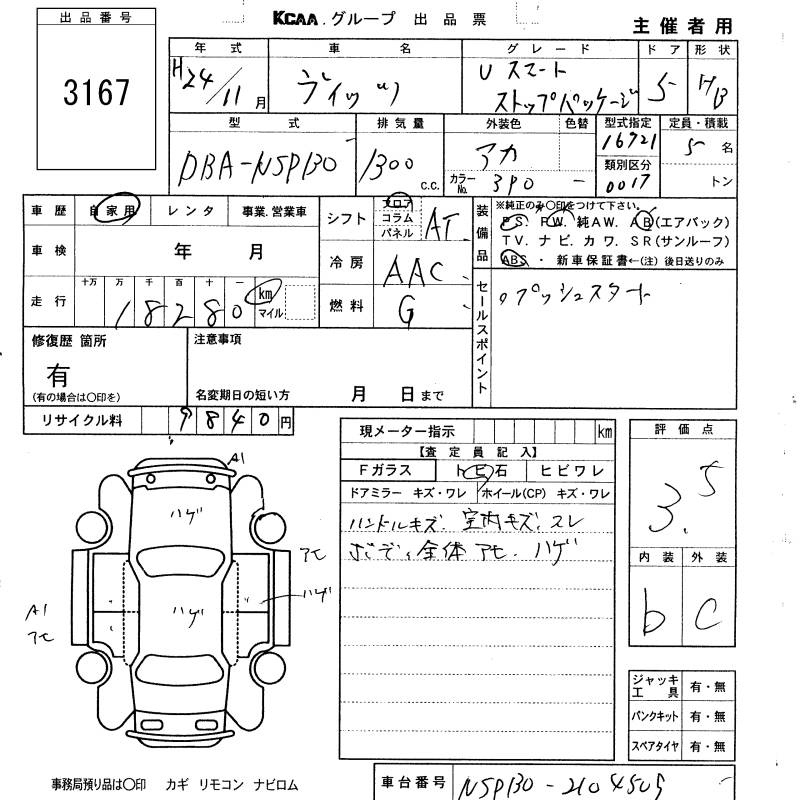 KCAA.グループ 出品票
主催者用
出品番号
3167
年式 車名 グレード ドア 形状
H24/11月 ヴィッツ Uスマート
ストップパッケージ 5 HB
型式 排気量 外装色 色替 型式指定 定員・積載
DBA-NSP130 1300 c.c. アカ 16721 5名
カラーNo. 3P0 - 類別区分 0017 トン
車歴 自家用 レンタ 事業.営業車
シフト フロア コラム パネル AT
装備品 ※純正のみ○印をつけて下さい。
PS. PW. 純AW. AB(エアバック)
TV. ナビ. カワ. SR(サンルーフ)
ABS ・ 新車保証書←(注) 後日送りのみ
車検 年 月
冷房 AAC
走行 十万 万 千 百 十 一
18280 km マイル
燃料 G
セールスポイント プッシュスタート
修復歴 箇所
有
(有の場合は○印を)
注意事項
名変期日の短い方 月 日まで
リサイクル料 9840円
現メーター指示 km
【査定員記入】
Fガラス トビ石 ヒビワレ
ドアミラー キズ・ワレ ホイール(CP) キズ・ワレ
ハンドルキズ. 室内キズ. スレ
全体 アセ. ハゲ
評価点
3.5
内装 外装
b C
A1
ハゲ
アモ
ハゲ
ハゲ
A1
アモ
ジャッキ工具 有・無
パンクキット 有・無
スペアタイヤ 有・無
事務局預り品は○印 カギ リモコン ナビロム
車台番号 NSP130-2104505